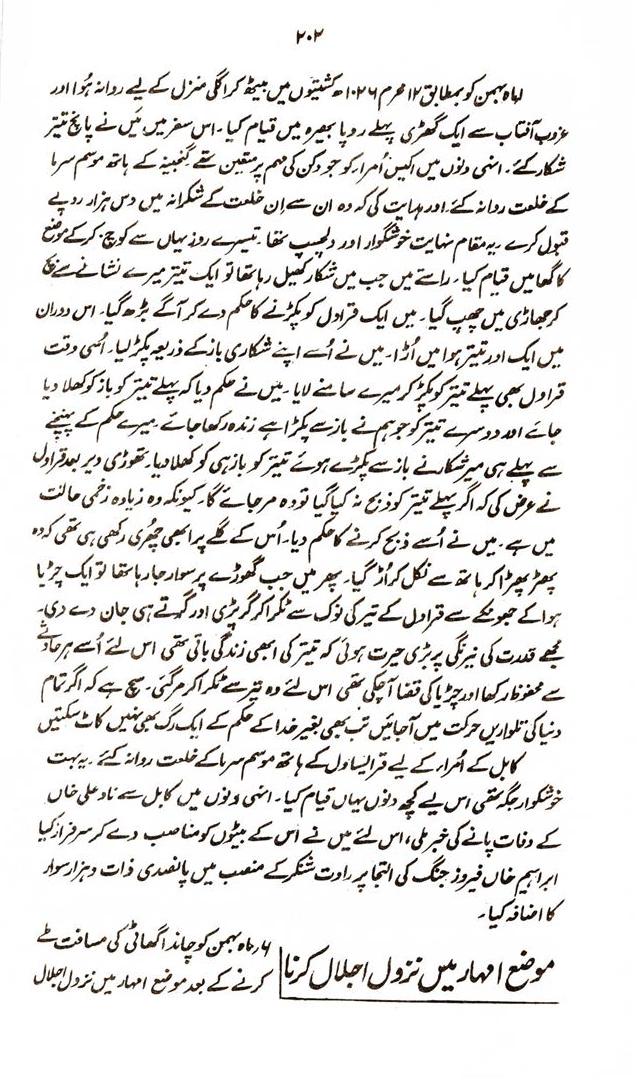 ۲۰۲
۱ماہ بہمن کو بمطابق ۱۲ محرم ۱۰۲۶ھ کشتیوں میں بیٹھ کر اگلی منزل کے لیے روانہ ہُوا اور
غروب آفتاب سے ایک گھڑی پہلے روپا بھیرہ میں قیام کیا۔ اس سفر میں مَیں نے پانچ تیتر
شکار کئے۔ انہی دنوں میں اکیس اُمراء کو جو دکن کی مہم پر متعین تھے گنجینہ کے ہاتھ موسم سرما
کے خلعت روانہ کئے۔ اور ہدایت کی کہ وہ ان سے اِن خلعت کے شکرانہ میں دس ہزار روپے
قبول کرے۔ یہ مقام نہایت خوشگوار اور دلچسپ تھا۔ تیسرے روز یہاں سے کوچ کر کے موضع
کاگھا میں قیام کیا۔ راستے میں جب میں شکار کھیل رہا تھا تو ایک تیتر میرے نشانے سے بچ
کر جھاڑی میں چھپ گیا۔ میں ایک قراول کو پکڑنے کا حکم دے کر آگے بڑھ گیا۔ اس دوران
میں ایک اور تیتر ہوا میں اُڑا۔ میں نے اُسے اپنے شکاری باز کے ذریعہ پکڑ لیا۔ اُسی وقت
قراول بھی پہلے تیتر کو پکڑ کر میرے سامنے لایا۔ میں نے حکم دیا کہ پہلے تیتر کو باز کو کھلا دیا
جائے اور دوسرے تیتر کو جو ہم نے باز سے پکڑا ہے زندہ رکھا جائے۔ میرے حکم کے پہنچنے
سے پہلے ہی میر شکار نے باز سے پکڑے ہوئے تیتر کو باز ہی کو کھلا دیا۔ تھوڑی دیر بعد قراول
نے عرض کی کہ اگر پہلے تیتر کو ذبح نہ کیا گیا تو وہ مر جائے گا۔ کیونکہ وہ زیادہ زخمی حالت
میں ہے۔ میں نے اُسے ذبح کرنے کا حکم دیا۔ اُس کے گلے پر ابھی چھری رکھی ہی تھی کہ وہ
پھڑ پھڑا کر ہاتھ سے نکل کر اُڑ گیا۔ پھر میں جب گھوڑے پر سوار جا رہا تھا تو ایک چڑیا
ہوا کے جھونکے سے قراول کے تیر کی نوک سے ٹکرا کر گر پڑی اور گرتے ہی جان دے دی۔
مجھے قدرت کی نیرنگی پر بڑی حیرت ہوئی کہ تیتر کی ابھی زندگی باقی تھی اس لئے اُسے ہر حادثے
سے محفوظ رکھا اور چڑیا کی قضا آ چکی تھی اس لئے وہ تیر سے ٹکرا کر مر گئی۔ سچ ہے کہ اگر تمام
دنیا کی تلواریں حرکت میں آجائیں تب بھی بغیر خدا کے حکم کے ایک رگ بھی نہیں کاٹ سکتیں
کابل کے اُمراء کے لیے قرا یساول کے ہاتھ موسم سرما کے خلعت روانہ کئے۔ یہ بہت
خوشگوار جگہ تھی اس لیے کچھ دنوں یہاں قیام کیا۔ انہی دنوں میں کابل سے ناد علی خاں
کے وفات پانے کی خبر ملی، اس لئے میں نے اس کے بیٹوں کو مناصب دے کر سرفراز کیا
ابراہیم خاں فیروز جنگ کی التجا پر راوت شنکر کے منصب میں پانصدی ذات و ہزار سوار
کا اضافہ کیا۔
موضع امہار میں نزول اجلال کرنا
۶ ماہ بہمن کو چاندا گھاٹی کی مسافت طے
کرنے کے بعد موضع امہار میں نزول اجلال